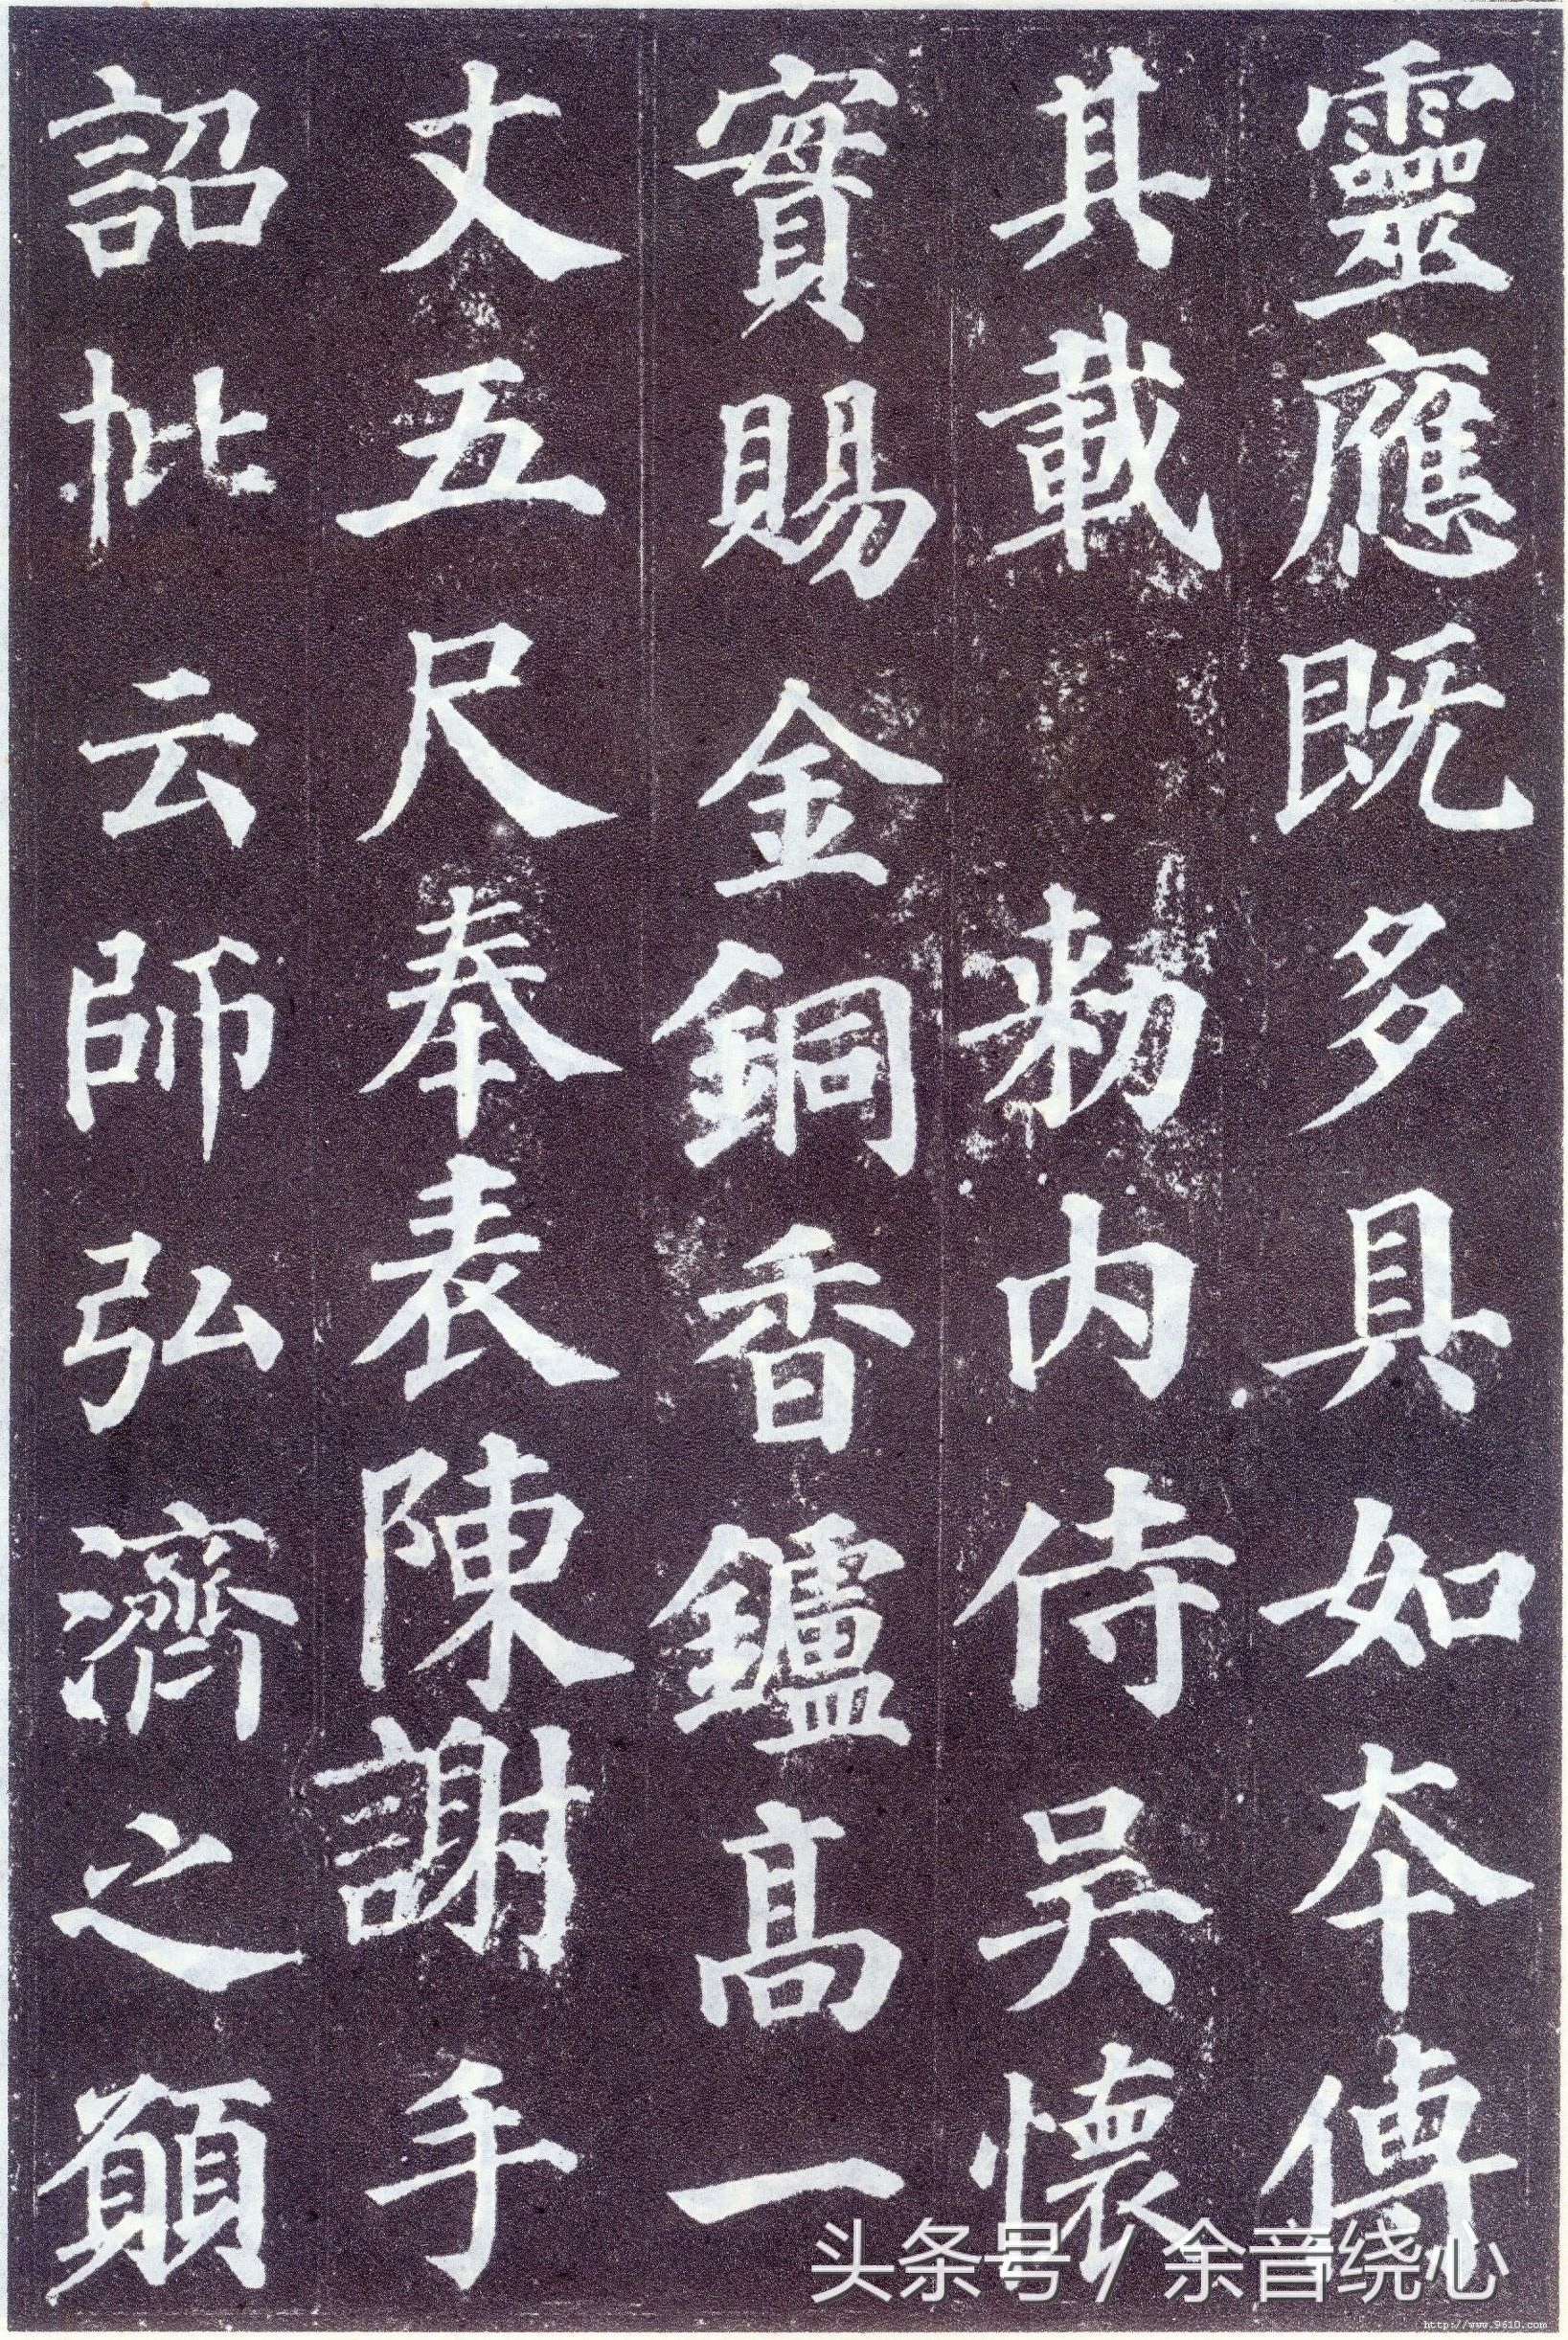 靈應既多具如本傳
其載　勑內侍吳懷
實賜金銅香鑪高一
丈五尺奉表陳謝手
詔批云師弘濟之願
头条号 / 余音绕心
http://www.9610.com